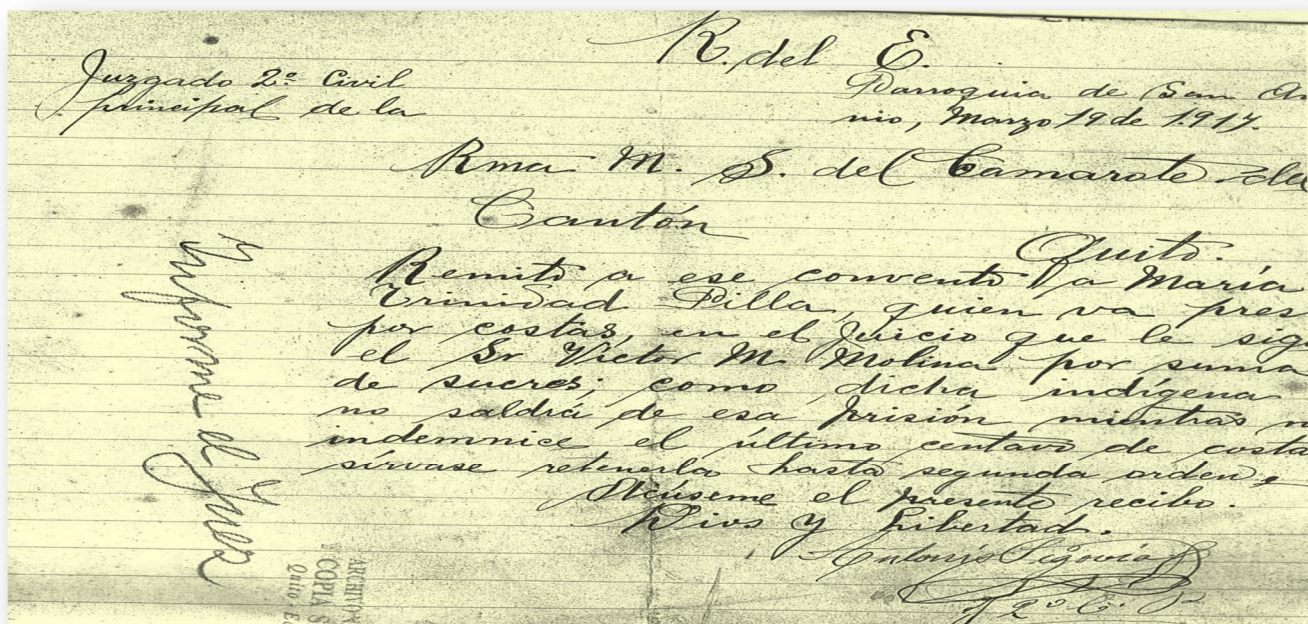 R. del E.
Juzgado 2º Civil
principal de la
Parroquia de San An
nio, Marzo 19 de 1.917.
Rma M. S. del Camarote del
Cantón
Quito.
Remito a ese convento a María
Trinidad Pilla, quien va pres
por costas, en el Juicio que le sigu
el Sr Víctor M. Molina por suma
de sucres; como dicha indígena
no saldrá de esa prisión mientras n
indemnice el último centavo de costa
sírvase retenerla hasta segunda orden,
Acúseme el presente recibo.
Dios y Libertad.
Antonio Segovia
J 2º C. P
Informe el Juez
ARCHIVO
COPIA S
Quito E